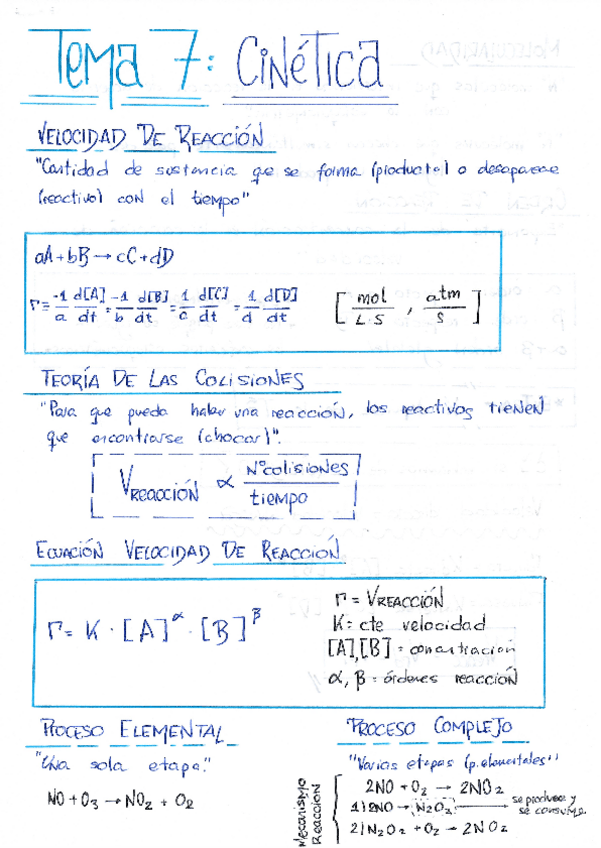 Tema 7: Cinética
VELOCIDAD DE REACCIÓN
"Cantidad de sustancia que se forma (producto) o desaparece
(reactivo) con el tiempo"
aA + bB → cC + dD
r = -1/a d[A]/dt = -1/b d[B]/dt = 1/c d[C]/dt = 1/d d[D]/dt [mol/L·s , atm/s]
TEORÍA DE LAS COLISIONES
"Para que pueda haber una reacción, los reactivos tienen
que encontrarse (chocar)".
VREACCIÓN ∝ Nº colisiones / tiempo
ECUACIÓN VELOCIDAD DE REACCIÓN
r = K · [A]^α · [B]^β
r = VREACCIÓN
K = cte velocidad
[A],[B] = concentración
α, β = órdenes reacción
PROCESO ELEMENTAL
"Una sola etapa."
NO + O3 → NO2 + O2
PROCESO COMPLEJO
"Varias etapas (p. elementales)"
Mecanismo Reacción
2NO + O2 → 2NO2
1) 2NO → N2O2 → se produce y se consume
2) N2O2 + O2 → 2NO2